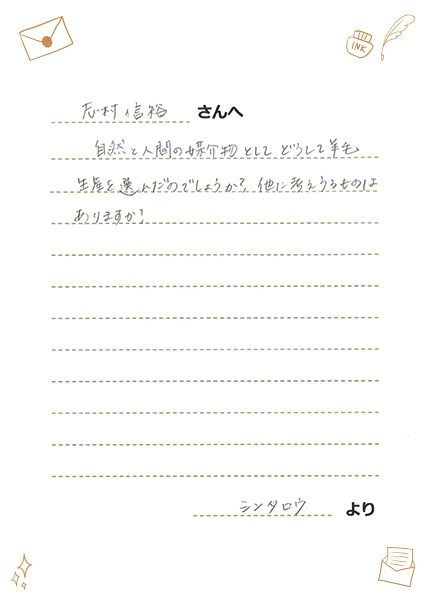 INK
志村信裕 さんへ
自然と人間の媒介物として どうして羊毛
生産を選んだのでしょうか? 他に考えうるものは
ありますか?
シンタロウ より